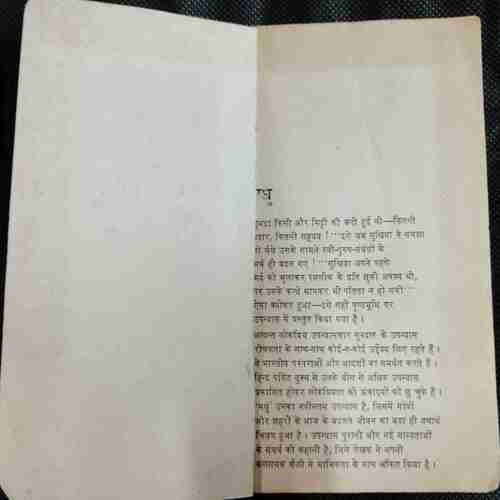 मधु
सुभद्रा किसी और मिट्टी की बनी हुई थी—कितनी
उदार, कितनी सहृदय !
उसके सामने स्त्री-पुरुष-संबंधों के
अर्थ ही बदल गए ! सुखिया अपने रहते
धर्म को भुलाकर के प्रति झुकी अवश्य थी,
पर उसके बन्धे भी पतिता न हो सकी
ऐसा क्योंकर हुआ—इसे सही पृष्ठभूमि पर
उपन्यास में प्रस्तुत किया गया है ।
अत्यन्त लोकप्रिय उपन्यासकार गुरुदत्त के उपन्यास
रोचकता के साथ-साथ कोई-न-कोई उद्देश्य लिए रहते हैं ।
वे भारतीय परम्पराओं और आदर्शों का समर्थन करते हैं ।
हिन्द पॉकेट बुक्स से उनके बीस से अधिक उपन्यास
प्रकाशित होकर लोकप्रियता की ऊंचाइयों को छू चुके हैं ।
'मधु' उनका नवीनतम उपन्यास है, जिसमें गांवों
और शहरों के आज के बदलते जीवन का बड़ा ही यथार्थ
चित्रण हुआ है । उपन्यास पुरानी और नई मान्यताओं
के संघर्ष की कहानी है, जिसे लेखक ने अपनी
कलात्मक शैली में मार्मिकता के साथ अंकित किया है ।